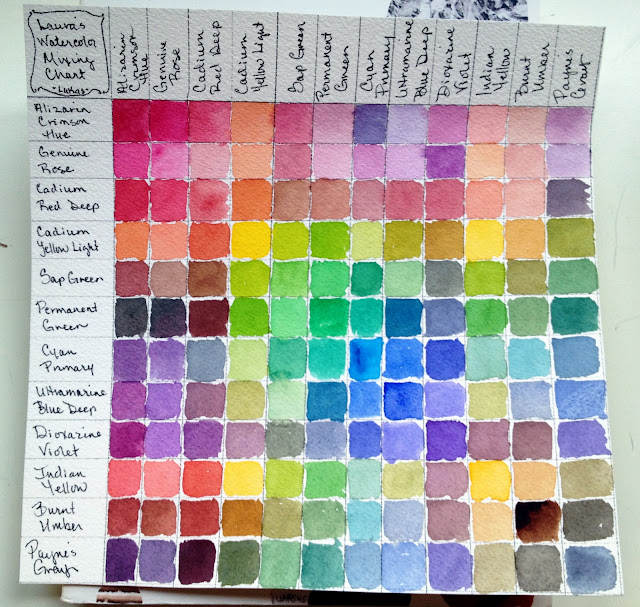 Laura's
Watercolor
Mixing
Chart
- Lukas -
Alizarin
Crimson
Hue
Genuine
Rose
Cadium
Red Deep
Cadium
Yellow Light
Sap Green
Permanent
Green
Cyan
Primary
Ultramarine
Blue Deep
Dioxazine
Violet
Indian
Yellow
Burnt
Umber
Payne's
Gray
Alizarin
Crimson
Hue
Genuine
Rose
Cadium
Red Deep
Cadium
Yellow Light
Sap Green
Permanent
Green
Cyan
Primary
Ultramarine
Blue Deep
Dioxazine
Violet
Indian
Yellow
Burnt
Umber
Payne's
Gray